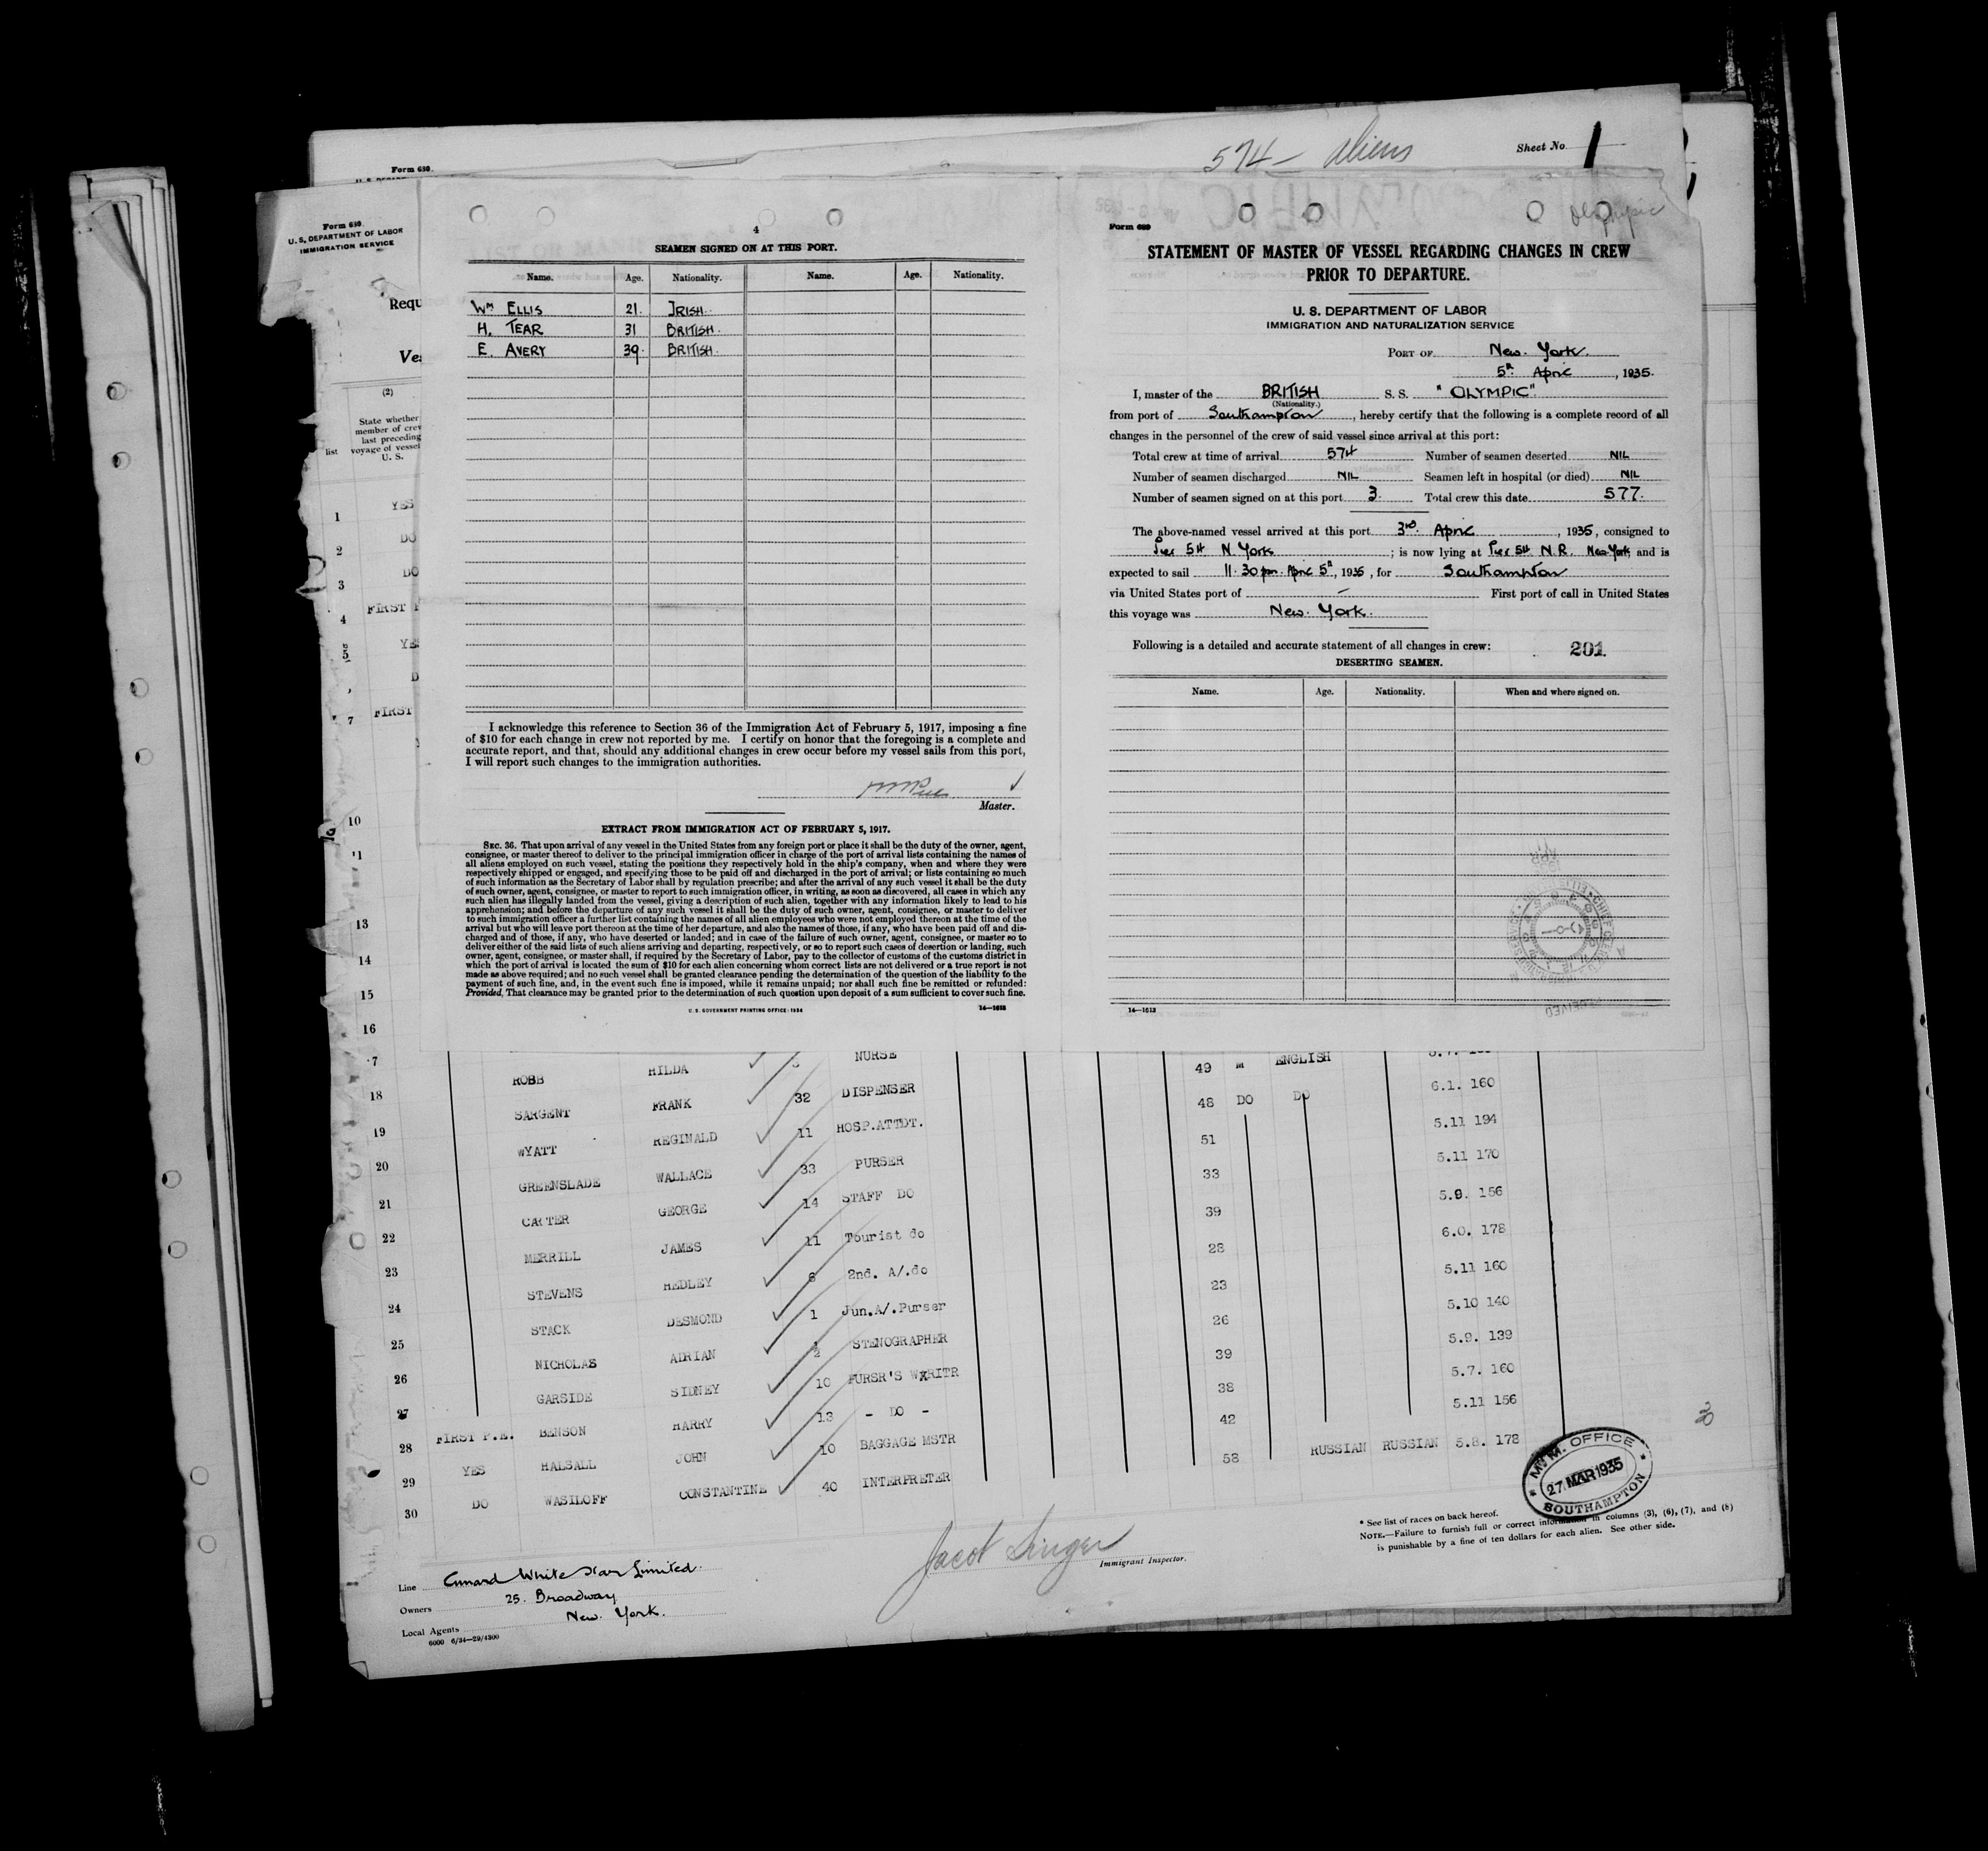 574 - Aliens
Sheet No. 1
Form 630
Form 630
U. S. DEPARTMENT OF LABOR
IMMIGRATION SERVICE
Requ
(2)
State whether
member of crew
last preceding
voyage of vessel
U. S.
list
4
SEAMEN SIGNED ON AT THIS PORT.
Name. Age. Nationality. Name. Age. Nationality.
Wm ELLIS 21. IRISH.
H. TEAR 31 BRITISH.
E. AVERY 39. BRITISH.
I acknowledge this reference to Section 36 of the Immigration Act of February 5, 1917, imposing a fine
of $10 for each change in crew not reported by me. I certify on honor that the foregoing is a complete and
accurate report, and that, should any additional changes in crew occur before my vessel sails from this port,
I will report such changes to the immigration authorities.
Master.
EXTRACT FROM IMMIGRATION ACT OF FEBRUARY 5, 1917.
SEC. 36. That upon arrival of any vessel in the United States from any foreign port or place it shall be the duty of the owner, agent,
consignee, or master thereof to deliver to the principal immigration officer in charge of the port of arrival lists containing the names of
all aliens employed on such vessel, stating the positions they respectively hold in the ship's company, when and where they were
respectively shipped or engaged, and specifying those to be paid off and discharged in the port of arrival; or lists containing so much
of such information as the Secretary of Labor shall by regulation prescribe; and after the arrival of any such vessel it shall be the duty
of such owner, agent, consignee, or master to report to such immigration officer, in writing, as soon as discovered, all cases in which any
such alien has illegally landed from the vessel, giving a description of such alien, together with any information likely to lead to his
apprehension; and before the departure of any such vessel it shall be the duty of such owner, agent, consignee, or master to deliver
to such immigration officer a further list containing the names of all alien employees who were not employed thereon at the time of the
arrival but who will leave port thereon at the time of her departure, and also the names of those, if any, who have been paid off and dis-
charged and of those, if any, who have deserted or landed; and in case of the failure of such owner, agent, consignee, or master so to
deliver either of the said lists of such aliens arriving and departing, respectively, or so to report such cases of desertion or landing, such
owner, agent, consignee, or master shall, if required by the Secretary of Labor, pay to the collector of customs of the customs district in
which the port of arrival is located the sum of $10 for each alien concerning whom correct lists are not delivered or a true report is not
made as above required; and no such vessel shall be granted clearance pending the determination of the question of the liability to the
payment of such fine, and, in the event such fine is imposed, while it remains unpaid; nor shall such fine be remitted or refunded:
Provided, That clearance may be granted prior to the determination of such question upon deposit of a sum sufficient to cover such fine.
U. S. GOVERNMENT PRINTING OFFICE: 1934 14—1613
Olympic
Form 689
STATEMENT OF MASTER OF VESSEL REGARDING CHANGES IN CREW
PRIOR TO DEPARTURE.
U. S. DEPARTMENT OF LABOR
IMMIGRATION AND NATURALIZATION SERVICE
PORT OF New York.
5th April, 1935.
I, master of the BRITISH S. S. "OLYMPIC"
(Nationality.)
from port of Southampton, hereby certify that the following is a complete record of all
changes in the personnel of the crew of said vessel since arrival at this port:
Total crew at time of arrival 574 Number of seamen deserted NIL
Number of seamen discharged NIL Seamen left in hospital (or died) NIL
Number of seamen signed on at this port 3. Total crew this date 577.
The above-named vessel arrived at this port 3rd. April, 1935, consigned to
Pier 54 N. York; is now lying at Pier 54 N.R. New York, and is
expected to sail 11.30 pm. April 5th, 1935, for Southampton
via United States port of — First port of call in United States
this voyage was New York.
Following is a detailed and accurate statement of all changes in crew: 201
DESERTING SEAMEN.
Name. Age. Nationality. When and where signed on.
14—1613
1 YES
2 DO
3 DO
4 FIRST
5 YES
7 FIRST
10
13
14
15
16
7 ROBB HILDA NURSE 49 M ENGLISH
18 SARGENT FRANK 32 DISPENSER 48 DO DO 6.1. 160
19 WYATT REGINALD 11 HOSP.ATTDT. 51 5.11 194
20 GREENSLADE WALLACE 33 PURSER 33 5.11 170
21 CARTER GEORGE 14 STAFF DO 39 5.9. 156
22 MERRILL JAMES 11 Tourist do 28 6.0. 178
23 STEVENS HEDLEY 6 2nd. A/.do 23 5.11 160
24 STACK DESMOND 1 Jun.A/.Purser 26 5.10 140
25 NICHOLAS ADRIAN ½ STENOGRAPHER 39 5.9. 139
26 GARSIDE SIDNEY 10 PURSR'S WXRITR 38 5.7. 160
27 FIRST P.E. BENSON HARRY 13 - DO - 42 5.11 156
28 YES HALSALL JOHN 10 BAGGAGE MSTR 58 RUSSIAN RUSSIAN 5.8. 178
29 DO WASILOFF CONSTANTINE 40 INTERPRETER
30
M. M. OFFICE
27 MAR 1935
SOUTHAMPTON
* See list of races on back hereof.
NOTE.—Failure to furnish full or correct information in columns (3), (6), (7), and (8)
is punishable by a fine of ten dollars for each alien. See other side.
Jacob Singer
Immigrant Inspector.
Line Cunard White Star Limited.
Owners 25. Broadway
Local Agents New York.
6000 6/34—29/4300